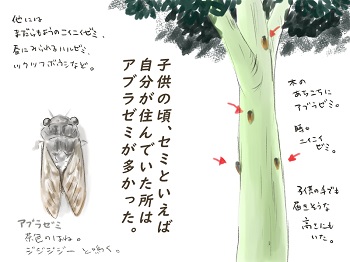 他には
まだらもようのニイニイゼミ、
春にみられるハルゼミ、
ツクツクボウシなど。
子供の頃、セミといえば
自分が住んでいた所は
アブラゼミが多かった。
木の
あちこちに
アブラゼミ。
時々
ニイニイ
ゼミ。
子供の手でも
届きそうな
高さにも
いた。
アブラゼミ
茶色のはね。
ジジジジジー と鳴く。